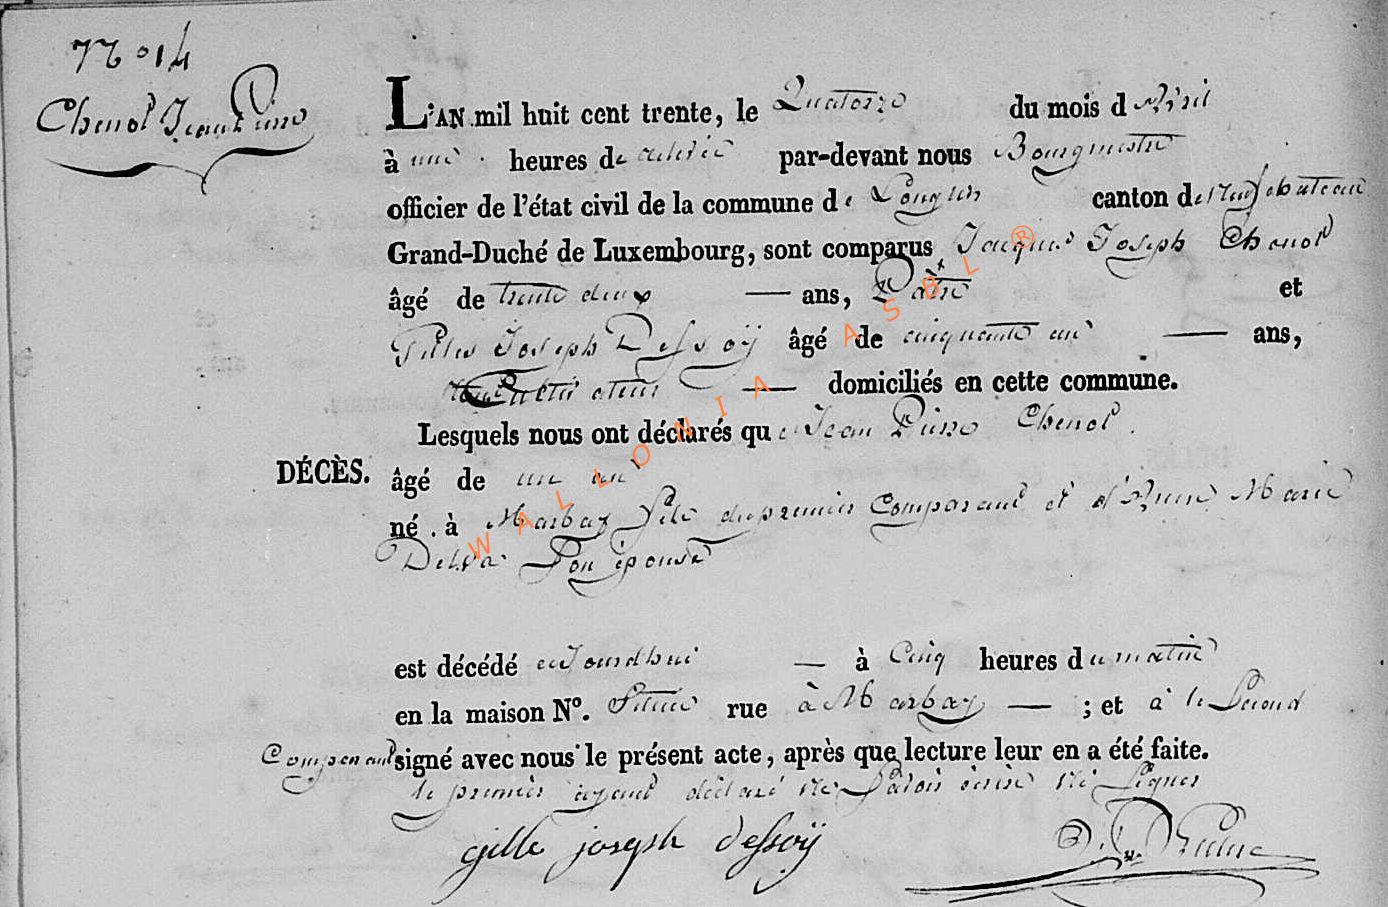 N° 14
Chenot Jean Pierre
L'AN mil huit cent trente, le Quatorze du mois d'Avril
à une heures de relevée par-devant nous Bourgmestre
officier de l'état civil de la commune de Longlier canton de Neufchateau
Grand-Duché de Luxembourg, sont comparus Jacques Joseph Chenot
âgé de trente deux — ans, et
Gilles Joseph Dessoÿ âgé de cinquante un — ans,
Cultivateurs — domiciliés en cette commune.
Lesquels nous ont déclarés que Jean Pierre Chenot.
DÉCÈS. âgé de un an
né à Marbay fils du premier Comparant et d'Anne Marie
son épouse
est décédé aujourdhui — à Cinq heures du matin
en la maison N°. Située rue à Marbay — ; et à le Second
Comparant signé avec nous le présent acte, après que lecture leur en a été faite.
le premier ayant déclaré ne savoir écrire ni signer
gille joseph dessoÿ
WALLONIA ASBL ®